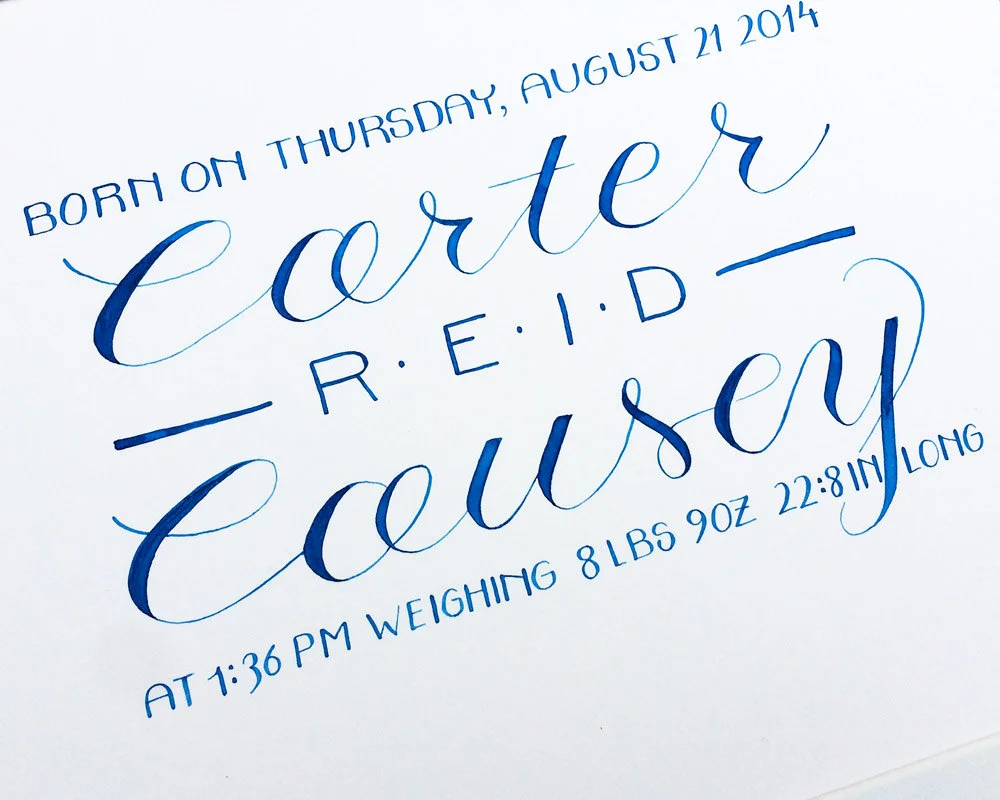 BORN ON THURSDAY, AUGUST 21 2014
Carter
R·E·I·D
Causey
AT 1:36 PM WEIGHING 8 LBS 9OZ 22:8 IN LONG